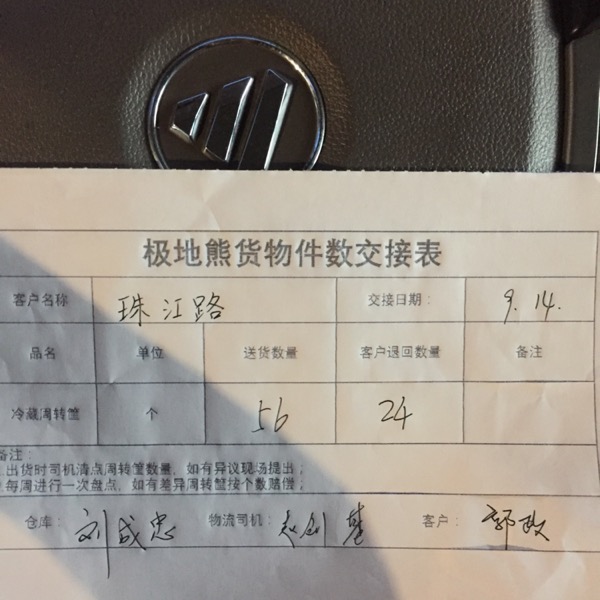 极地熊货物件数交接表
客户名称 珠江路 交接日期： 9.14.
品名 单位 送货数量 客户退回数量 备注
冷藏周转筐 个 56 24
备注：
出货时司机清点周转筐数量，如有异议现场提出；
每周进行一次盘点，如有差异周转筐按个数赔偿；
仓库： 刘成忠 物流司机： 客户： 郭政